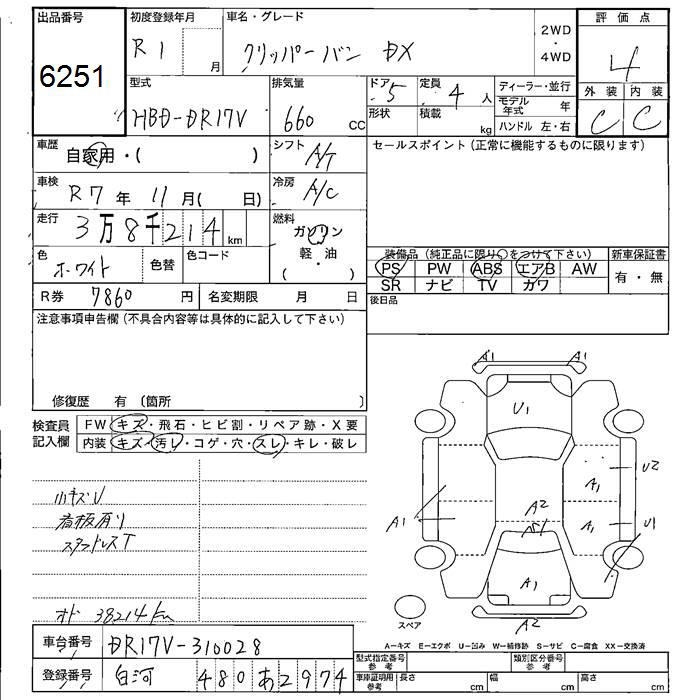 出品番号
6251
初度登録年月
R1 月
車名・グレード
クリッパーバン DX
2WD
・
4WD
評価点
4
外装 内装
C C
型式
HBD-DR17V
排気量
660 CC
ドア 5
形状
定員 4 人
積載 kg
ディーラー・並行
モデル年式 年
ハンドル 左・右
車歴
自家用・( )
シフト
A/T
車検
R7年 11月( 日)
冷房
A/C
走行
3万8千214km
燃料
ガソリン
・
軽・油
( )
色
ホワイト
色替
色コード
R券 7860円
名変期限 月 日
セールスポイント(正常に機能するものに限ります)
装備品(純正品に限り○をつけて下さい)
PS PW ABS エアB AW
SR ナビ TV カワ
新車保証書
有・無
後日品
注意事項申告欄(不具合内容等は具体的に記入して下さい)
修復歴 有(箇所 )
検査員
記入欄
FW キズ・飛石・ヒビ割・リペア跡・X要
内装 キズ・汚レ・コゲ・穴・スレ・キレ・破レ
小キズU
看板有り
スタッドレスT
オド 38214km
A1 A1
U1
U2
A1
A2
A1
A1
U1
A1
A2
スペア
A-キズ E-エクボ U-凹み W-補修跡 S-サビ C-腐食 XX-交換済
車台番号 DR17V-310028
登録番号 白河 480 あ 2974
型式指定番号
参考
類別区分番号
参考
車庫証明用
参考
長さ cm
幅 cm
高さ cm